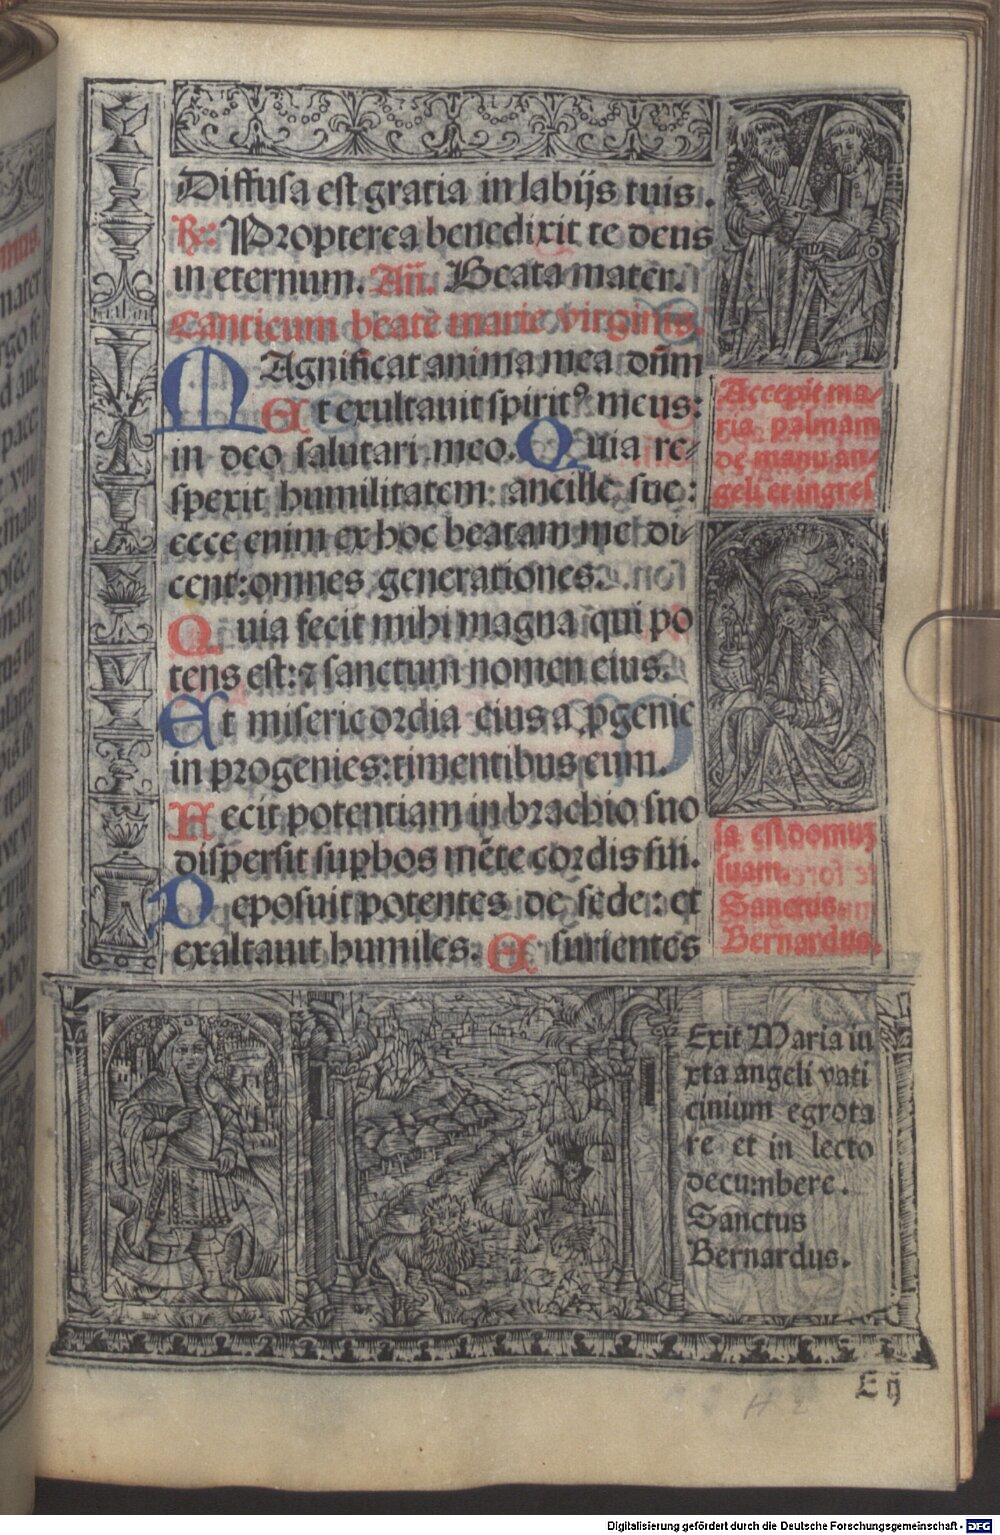 Diffusa est gratia in labijs tuis.
R: Propterea benedixit te deus
in eternum. An̄. Beata mater.
Canticum beate marie virginis.
MAgnificat anima mea dn̄m
Et exultauit spiritꝰ meus:
in deo salutari meo. Quia re⸗
spexit humilitatem: ancille sue:
ecce enim ex hoc beatam me di⸗
cent: omnes generationes.
Quia fecit mihi magna qui po
tens est: ⁊ sanctum nomen eius.
Et misericordia eius a ꝓgenie
in progenies: timentibus eum.
Fecit potentiam in brachio suo
dispersit supbos mēte cordis sui.
Deposuit potentes de sede: et
exaltauit humiles. Esurientes
Accepit ma⸗
ria palmam
de manu an⸗
geli et ingres
sa est domuz
suam.
Sanctus
Bernardus.
Exit Maria iu
xta angeli vati
cinium egrota
re et in lecto
decumbere.
Sanctus
Bernardus.
E ij
H 2
Digitalisierung gefördert durch die Deutsche Forschungsgemeinschaft - DFG